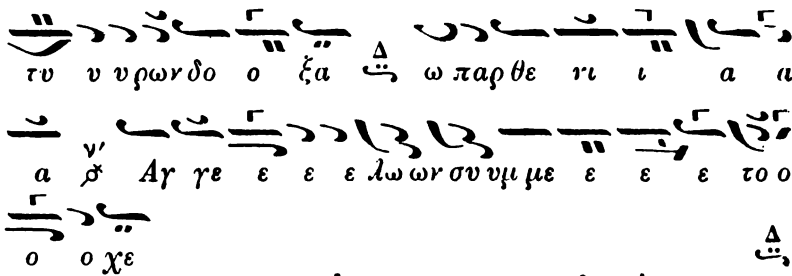 τυ υ υ ρων δο ο ξα Δ ω παρ θε νι ι α α
α ν' Αγ γε ε ε ε λω ων συ υμ με ε ε ε το ο
ο ο χε Δ